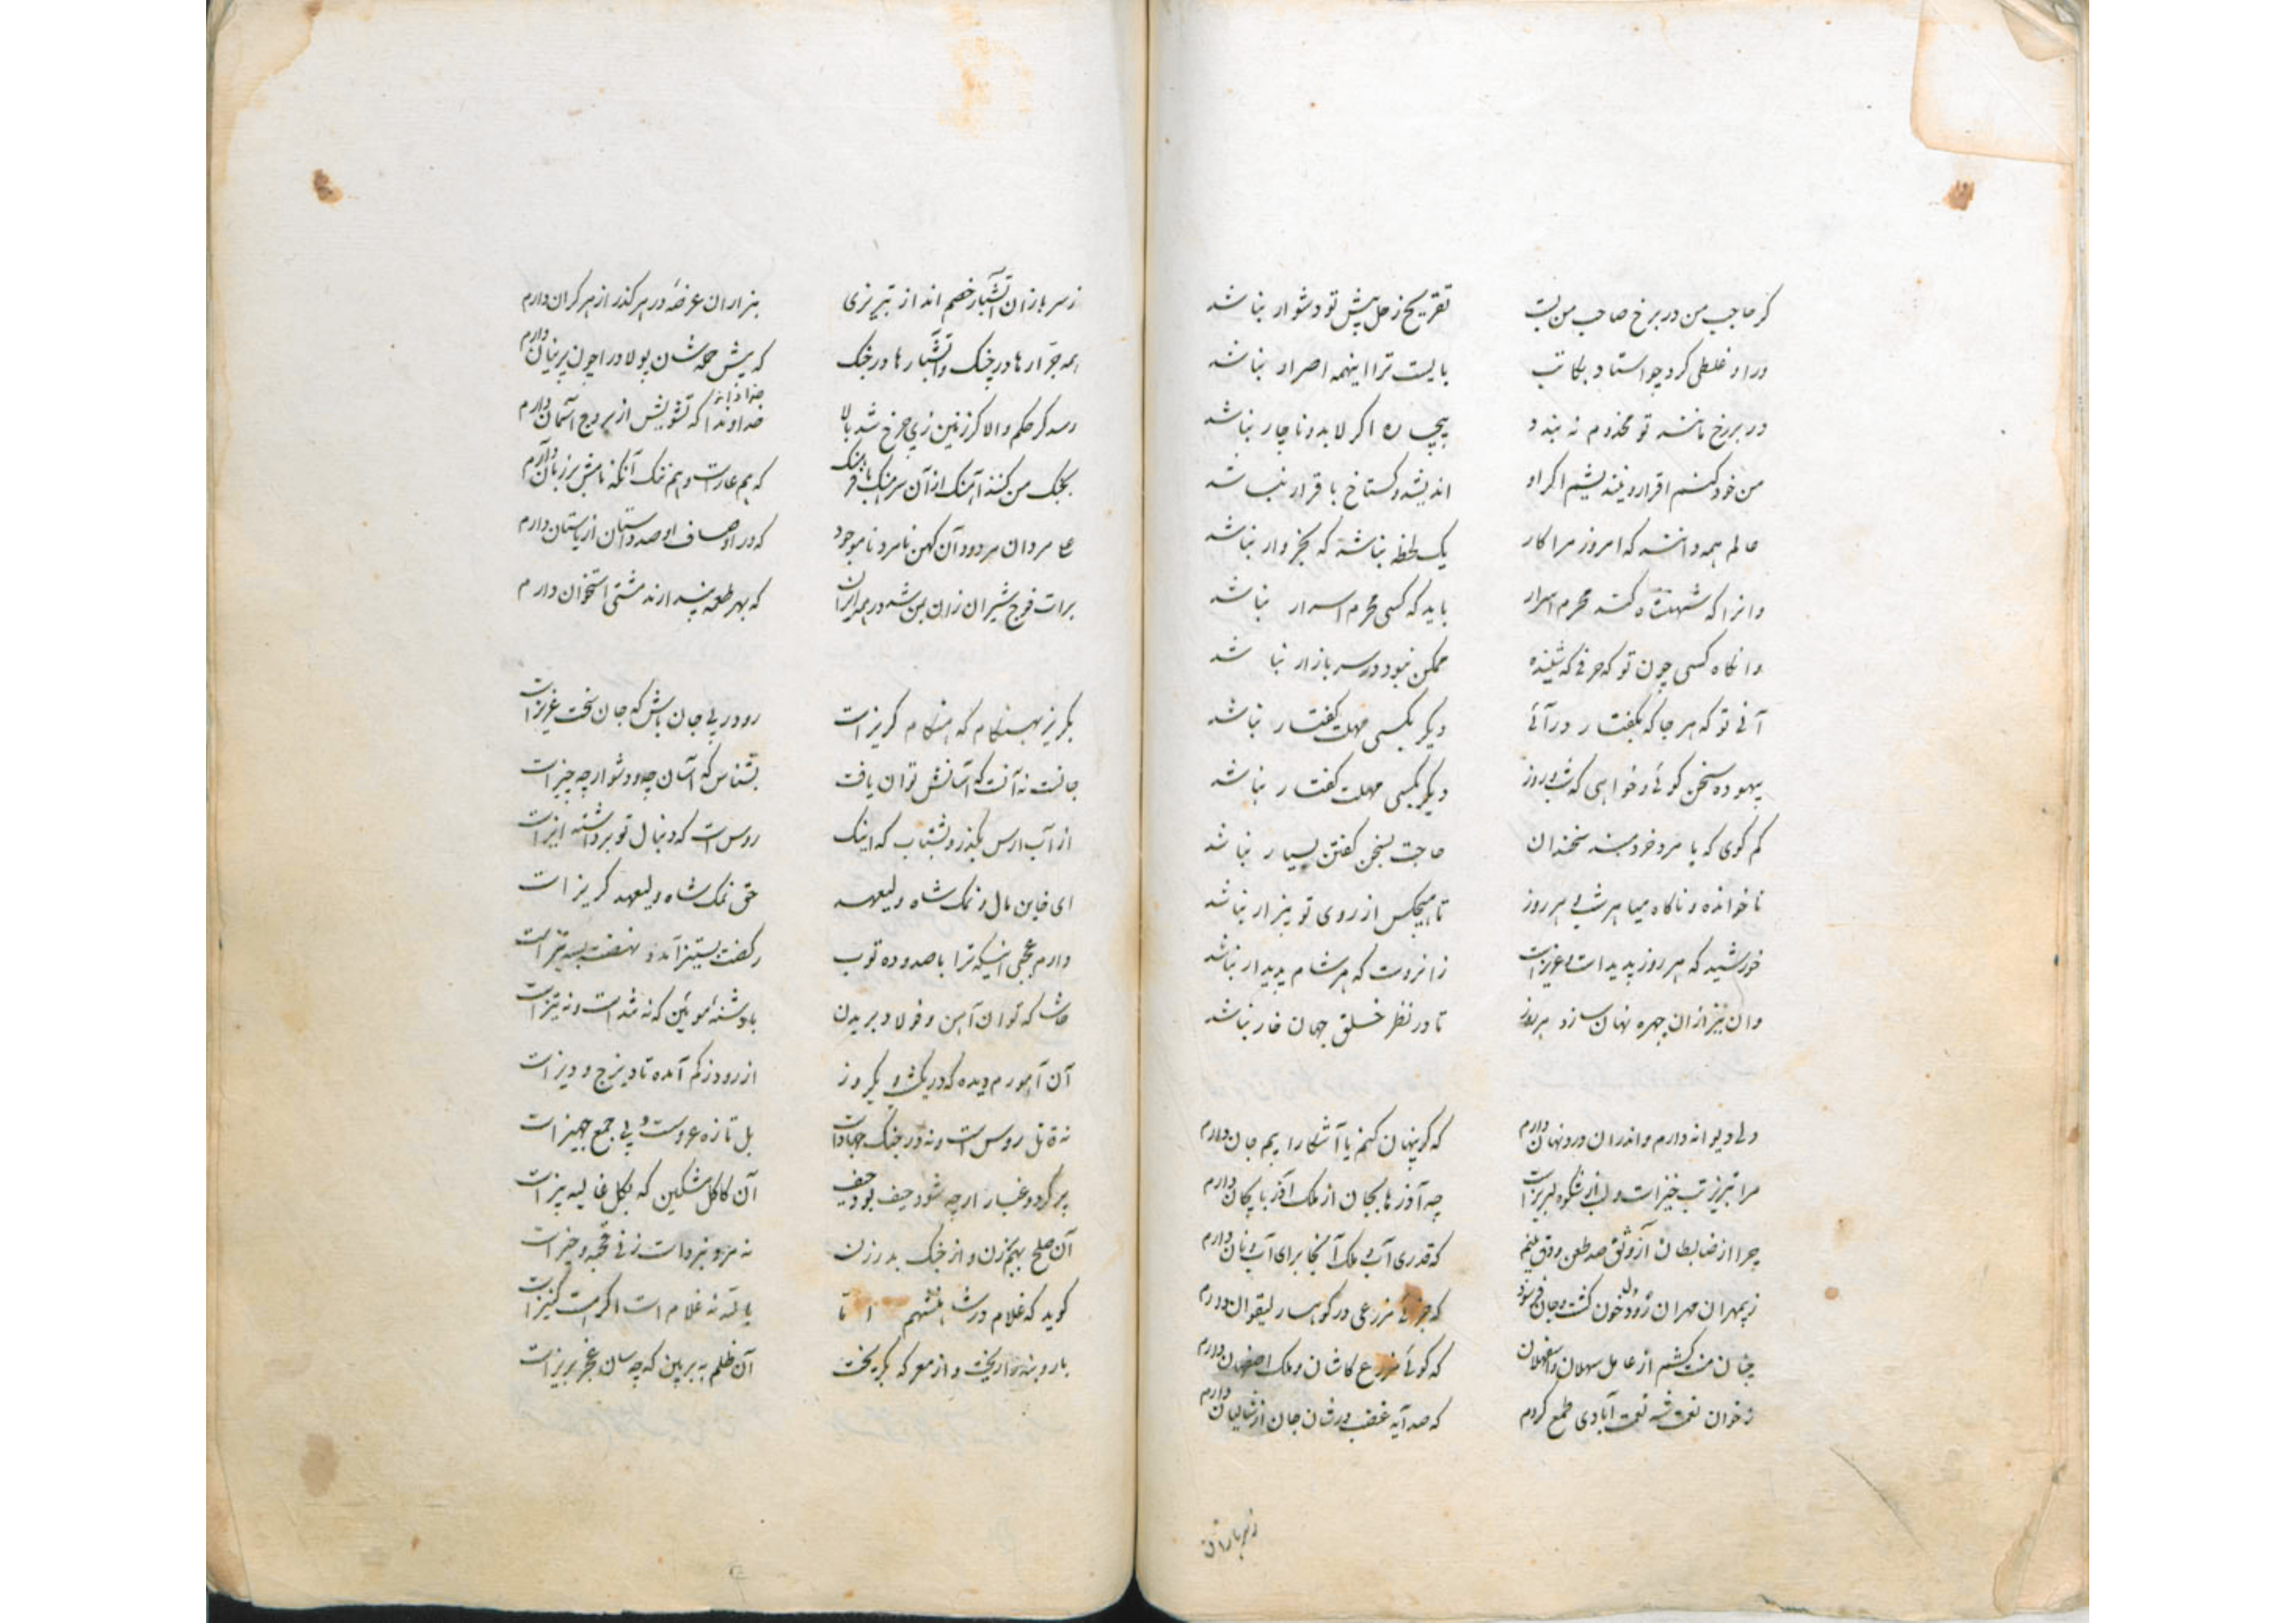 کر حاجب من در برخ صاحب من بست تقریح زحل پیش تو دشوار نباشد
در او غلطی کرد چو استاد بکاتب بایست ترا اینهمه اصرار نباشد
در برزخ مانند تو مخدوم نه بندد بیچاره اکر لابد و ناچار نباشد
من خود کنم اقرار و نیندیشم اکر او اندیشه و کستاخ باقرار نباشد
عالم همه دانند که امروز مرا کار یک لحظه نباشد که بخروار نباشد
وانرا که شهنشاه کند محرم اسرار باید که کسی محرم اسرار نباشد
وانکاه کسی چون تو که حرفی که شنیده ممکن نبود در سر بازار نباشد
آنی تو که هر جا که بکفتار درآئی دیکر بکسی مهلت کفتار نباشد
بیهوده سخن کوئی و خواهی که شب و روز دیکر بکسی مهلت کفتار نباشد
کم کوی که با مرد خردمند سخندان حاجت بسخن کفتن بسیار نباشد
ناخوانده و ناکاه میا هر شب و هر روز تا هیچکس از روی تو بیزار نباشد
خورشید که هر روز پدید است و عزیز است زانروست که هر شام پدیدار نباشد
وان نیز ازان چهره نهان سازد هر روز تا در نظر خلق جهان خوار نباشد
دلی دیوانه دارم واندران درد نهان دارم که کر پنهان کنم یا آشکارا بیم جان دارم
مرا تبریز تب خیز است و لب از شکوه لبریز است چه آذرها بجان از ملک آذربایجان دارم
چرا از ضابطان آرونق صد طعن و دق بینم که قدری آب و ملک آنجا برای آب و نان دارم
ز بیمهران مهران رود دل خون کشت و جان فرسود که جزئی مزرعی در کوهسار لیقوان دارم
چنان منت کشم از عامل سهلان و اسفهلان که کوئی مزرع کاشان و ملک اصفهان دارم
ز خوان نعمت شه نعمت آبادی طمع کردم که صد آیه غضب در شان جان از شانیان دارم
زسربازان
زسربازان آتشبار خصم انداز تبریزی هزاران عرضه در هر کذر از هر کران دارم
همه جرارها در چنک و آتشبارها در جنک که پیش حمله شان پولاد را چون پرنیان دارم
رسد کر حکم والا کز زمین زی چرخ شد بالا خداوندا که تشویش از بروج آسمان دارم
بجنک من کنند آهنک از آن سرهنک با فرهنک که هم عار است و هم ننک آنکه نامش بر زبان دارم
عا مردان مردود آن کهن نامرد ناموجود که در اوصاف او صد داستان از باستان دارم
برات فوج شیران زان بمن شد در همه ایران که بهر طعمه پندارند مشتی استخوان دارم
بکریز بهنکام که هنکام کریز است رو در پی جان باش که جان سخت عزیز است
جانست نه آنست که آسانش توان یافت بشناس که آسان چه و دشوار چه چیز است
از آب ارس بکذر و بشتاب که اینک روس است که دنبال تو برداشته ایز است
ای خاین مال و نمک شاه و لیعهد حق نمک شاه و لیعهد کریز است
دارم عجبی اینکه ترا با صد و ده توب
حاشا که توان آهن و فولاد بریدن با دشنه مومین که نه تند است و نه تیز است
آن آهو رم دیده که در یک شب و یکروز از رود زکم آمده تا دیزج و دیز است
نه قاتل روس است و نه در جنک جهاد است بل تازه عروس است و پی جمع جهیز است
پر کرد و غبار ارچه شود حیف بود حیف آن کاکل مشکین که بکل غالیه بیز است
آن صلح بهم زن و از جنک بدر زن نه مرد نبرد است زنی قحبه و حیز است
کوید که غلام در شاهنشهم اما بالله نه غلام است اکر هست کنیز است
بار و بنه را ریخت و از معرکه بکریخت آن ظلم به بر بین که چه سان عجز بریز است